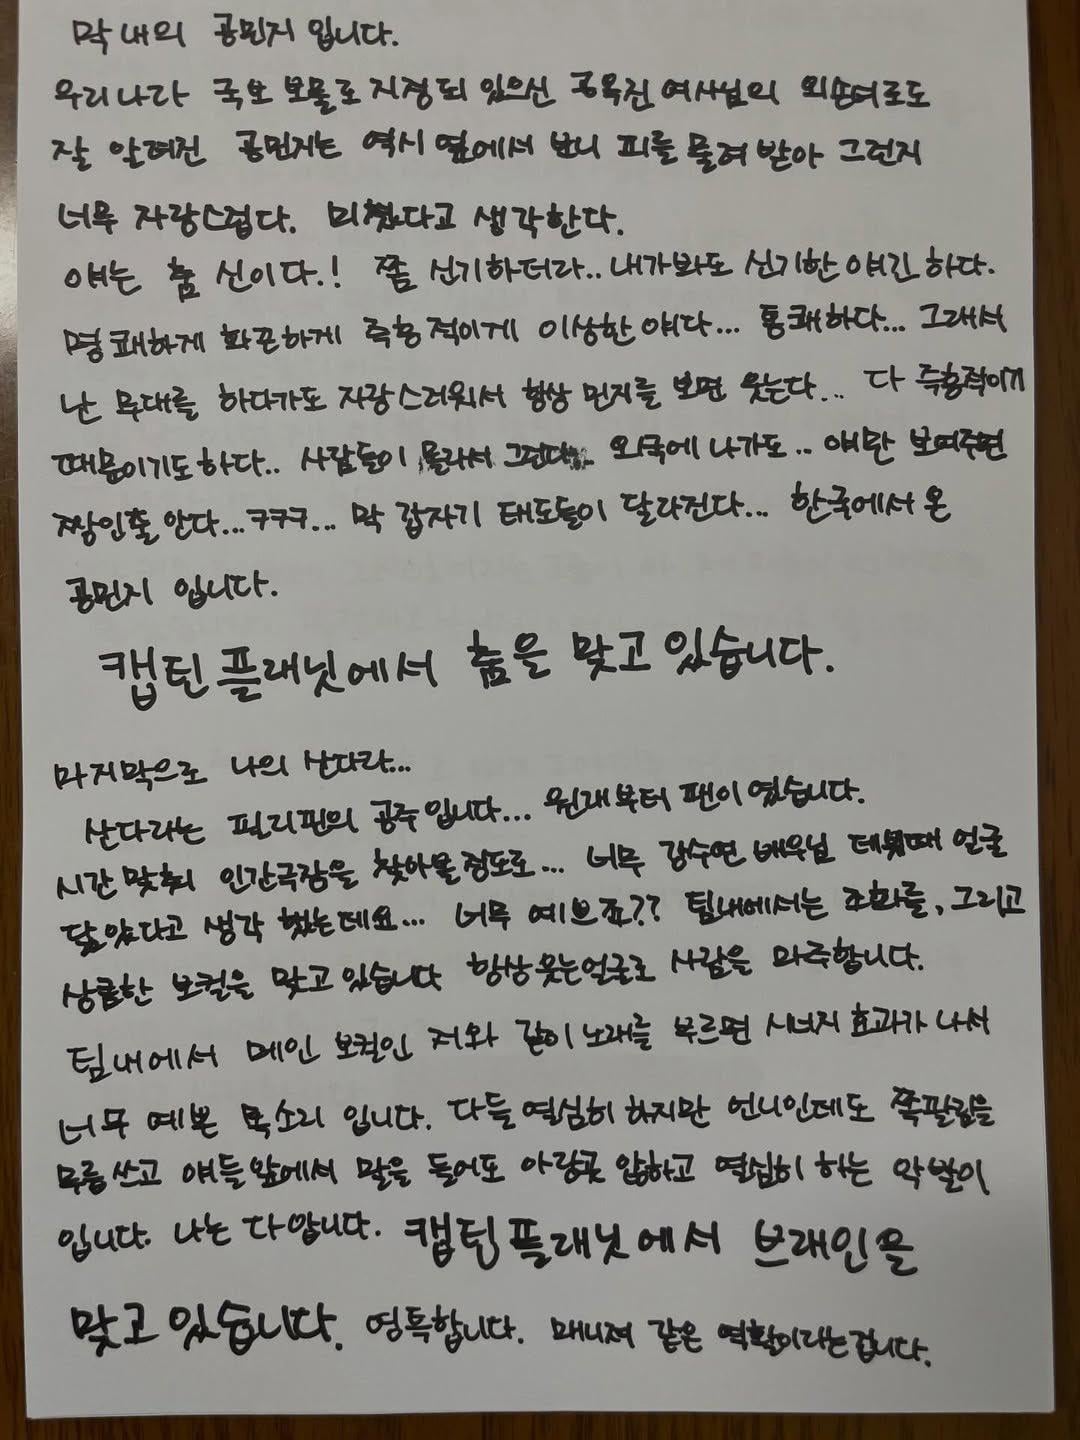 막내의 공민지 입니다.
우리나라 국보 보물로 지정되 있으신 공옥진 여사님의 외손녀로도
잘 알려진 공민지는 역시 옆에서 보니 피를 물려 받아 그런지
너무 자랑스럽다. 미쳤다고 생각한다.
얘는 춤 신이다.! 쫌 신기하더라.. 내가봐도 신기한 얘긴 하다.
명쾌하게 화끈하게 즉흥적이게 이상한 얘다... 통쾌하다... 그래서
난 무대를 하다가도 자랑스러워서 항상 민지를 보면 웃는다... 다 즉흥적이기
때문이기도하다.. 사람들이 몰라서 그런다.. 외국에 나가도.. 얘만 보여주면
짱인줄 안다...ㅋㅋㅋ... 막 갑자기 태도들이 달라진다... 한국에서 온
공민지 입니다.
캡틴플래닛에서 춤을 맞고 있습니다.
마지막으로 나의 산다라...
산다라는 필리핀의 공주입니다... 원래부터 팬이 였습니다.
시간 맞춰 인간극장을 찾아볼정도로... 너무 강수연 배우님 데뷔때 얼굴
닮았다고 생각 했는데요... 너무 예쁘죠?? 팀내에서는 조화를, 그리고
상큼한 보컬을 맞고 있습니다 항상웃는얼굴로 사람을 마주합니다.
팀내에서 메인 보컬인 저와 같이 노래를 부르면 시너지 효과가 나서
너무 예쁜 목소리 입니다. 다들 열심히 하지만 언니인데도 쪽팔림을
무릅쓰고 얘들앞에서 말을 들어도 아랑곳 않하고 열심히 하는 악발이
입니다. 나는 다압니다. 캡틴플래닛에서 브레인을
맞고 있습니다. 영특합니다. 매니져 같은 역활이라는겁니다.